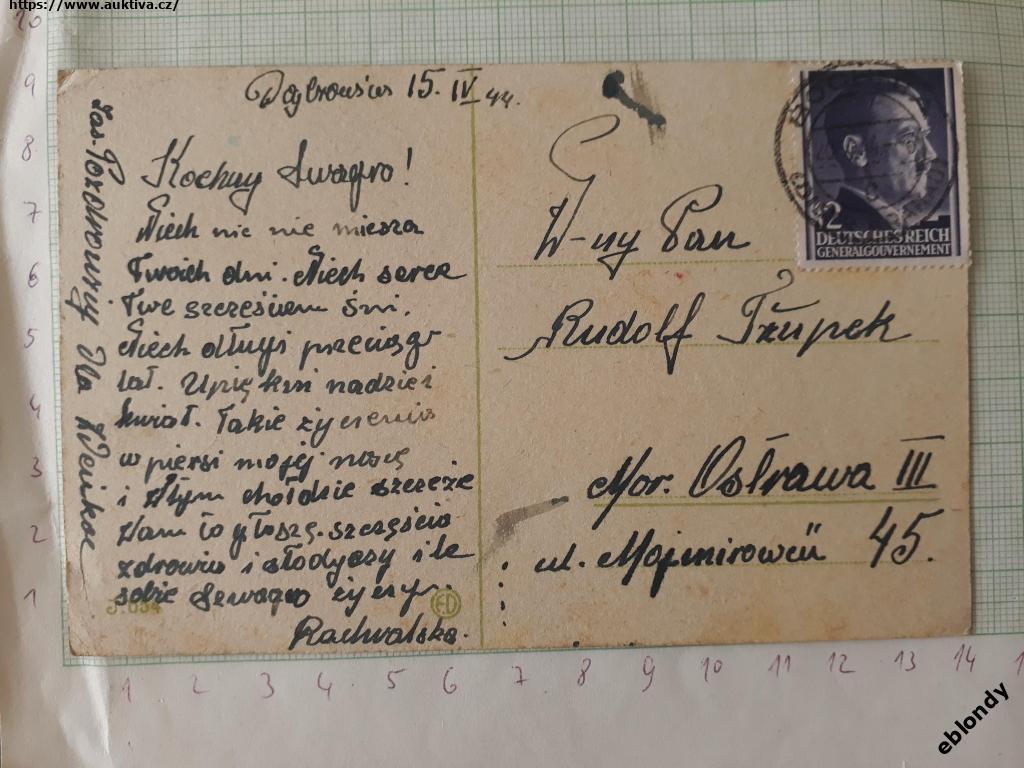 https://www.auktiva.cz/
15. IV 44.
Kochany Swagro!
Niech nic nie miesza
Twoich dni. Niech serce
Twe szczęściem śni.
Niech długi przeciąg
lat. Upięksi nadziei
kwiat. Takie życzenia
w piersi mojej noszę
i w tym chołdzie szczerze
Wam to głoszę. szczęścia
zdrowia i słodyczy i le
sobie Szwagro życzy.
Rachwalska.
W-ny Pan
Rudolf Tżupek
Mor. Ostrawa III
ul. Mojmirowců 45.
12
DEUTSCHES REICH
GENERALGOUVERNEMENT
ED
10
9
8
7
6
5
4
3
2
1
1 2 3 4 5 6 7 8 9 10 11 12 13 14
eblondy